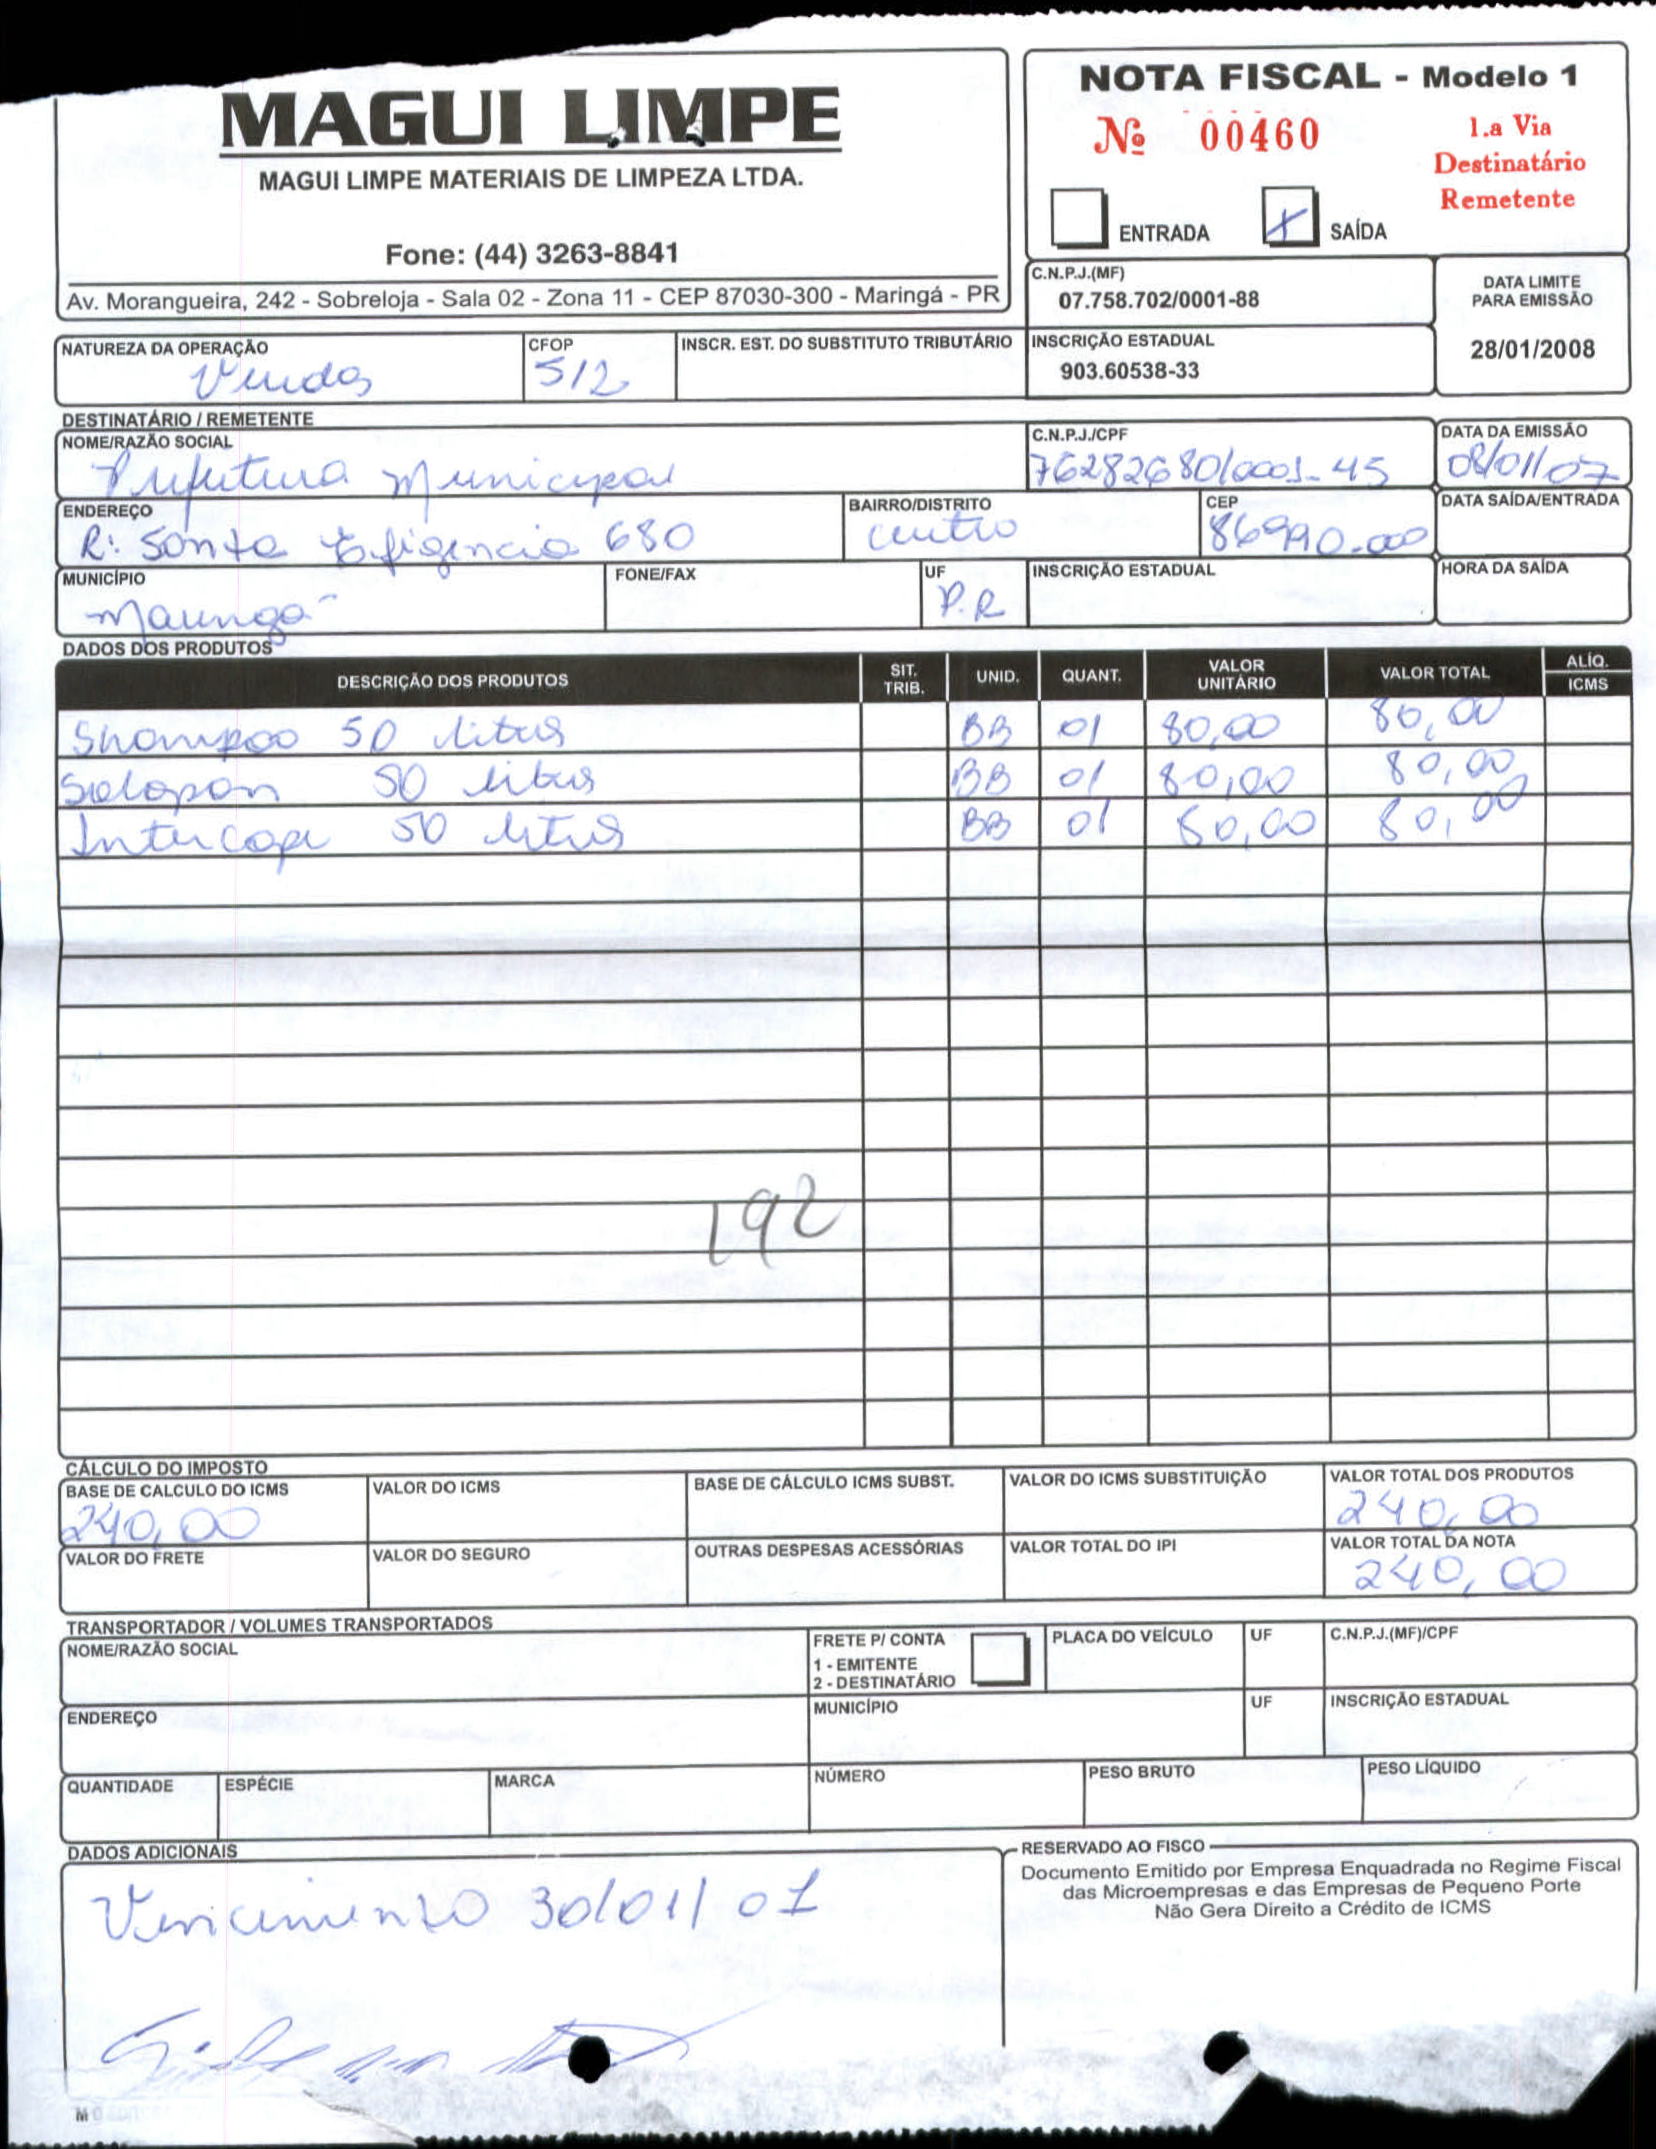 MAGUI LIMPE
MAGUI LIMPE MATERIAIS DE LIMPEZA LTDA.
Fone: (44) 3263-8841
Av. Morangueira, 242 - Sobreloja - Sala 02 - Zona 11 - CEP 87030-300 - Maringá - PR
NOTA FISCAL - Modelo 1
Nº 00460
1.a Via
Destinatário
Remetente
ENTRADA X SAÍDA
C.N.P.J.(MF)
07.758.702/0001-88
DATA LIMITE
PARA EMISSÃO
28/01/2008
INSCRIÇÃO ESTADUAL
903.60538-33
NATUREZA DA OPERAÇÃO CFOP INSCR. EST. DO SUBSTITUTO TRIBUTÁRIO
Vendas 512
DESTINATÁRIO / REMETENTE
NOME/RAZÃO SOCIAL C.N.P.J./CPF DATA DA EMISSÃO
Prefeitura Municipal 76282680/0001-45 08/01/07
ENDEREÇO BAIRRO/DISTRITO CEP DATA SAÍDA/ENTRADA
R: Santa Efigencia 680 centro 86990-000
MUNICÍPIO FONE/FAX UF INSCRIÇÃO ESTADUAL HORA DA SAÍDA
P.R
DADOS DOS PRODUTOS
DESCRIÇÃO DOS PRODUTOS SIT. TRIB. UNID. QUANT. VALOR UNITÁRIO VALOR TOTAL ALÍQ. ICMS
Shampoo 50 litros BB 01 80,00 80,00
Solopan 50 litros BB 01 80,00 80,00
Intercap 50 litros BB 01 80,00 80,00
192
CÁLCULO DO IMPOSTO
BASE DE CALCULO DO ICMS VALOR DO ICMS BASE DE CÁLCULO ICMS SUBST. VALOR DO ICMS SUBSTITUIÇÃO VALOR TOTAL DOS PRODUTOS
240,00 240,00
VALOR DO FRETE VALOR DO SEGURO OUTRAS DESPESAS ACESSÓRIAS VALOR TOTAL DO IPI VALOR TOTAL DA NOTA
240,00
TRANSPORTADOR / VOLUMES TRANSPORTADOS
NOME/RAZÃO SOCIAL FRETE P/ CONTA PLACA DO VEÍCULO UF C.N.P.J.(MF)/CPF
1 - EMITENTE
2 - DESTINATÁRIO
ENDEREÇO MUNICÍPIO UF INSCRIÇÃO ESTADUAL
QUANTIDADE ESPÉCIE MARCA NÚMERO PESO BRUTO PESO LÍQUIDO
DADOS ADICIONAIS
Vencimento 30/01/07
RESERVADO AO FISCO
Documento Emitido por Empresa Enquadrada no Regime Fiscal
das Microempresas e das Empresas de Pequeno Porte
Não Gera Direito a Crédito de ICMS